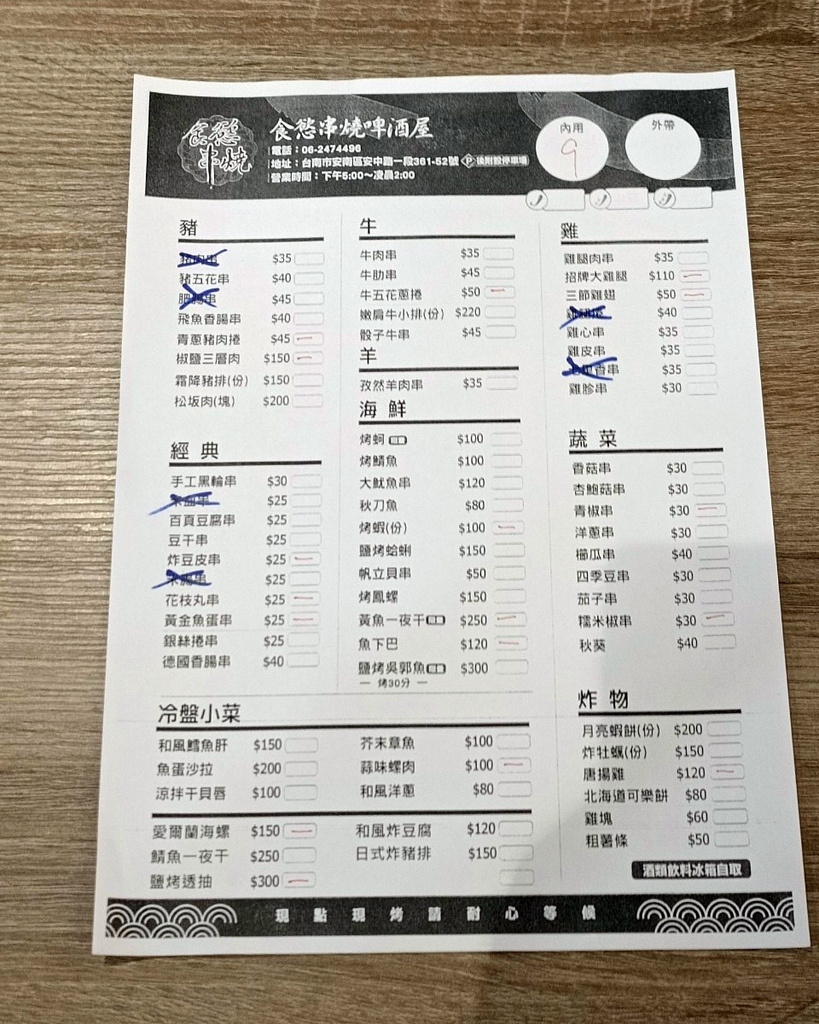 食慾串燒
食慾串燒啤酒屋
電話：06-2474496
地址：台南市安南區安中路一段361-52號 P 後附設停車場
營業時間：下午5:00～凌晨2:00
內用
9
外帶
豬
$35
豬五花串 $40
$45
飛魚香腸串 $40
青蔥豬肉捲 $45 一
椒鹽三層肉 $150 一
霜降豬排(份) $150
松坂肉(塊) $200
經典
手工黑輪串 $30
$25
百頁豆腐串 $25
豆干串 $25
炸豆皮串 $25 一
$25
花枝丸串 $25 一
黃金魚蛋串 $25 一
銀絲捲串 $25
德國香腸串 $40
牛
牛肉串 $35
牛肋串 $45
牛五花蔥捲 $50 一
嫩肩牛小排(份) $220
骰子牛串 $45
羊
孜然羊肉串 $35
海鮮
烤蚵 $100
烤鯖魚 $100
大魷魚串 $120
秋刀魚 $80
烤蝦(份) $100 一
鹽烤蛤蜊 $150
帆立貝串 $50
烤鳳螺 $150
黃魚一夜干 $250 一
魚下巴 $120 一
鹽烤吳郭魚 $300
— 烤30分 —
雞
雞腿肉串 $35
招牌大雞腿 $110 一
三節雞翅 $50 一
$40
雞心串 $35
雞皮串 $35
$35
雞胗串 $30
蔬菜
香菇串 $30
杏鮑菇串 $30
青椒串 $30 一
洋蔥串 $30
櫛瓜串 $40
四季豆串 $30
茄子串 $30
糯米椒串 $30 一
秋葵 $40
冷盤小菜
和風鱈魚肝 $150
芥末章魚 $100
魚蛋沙拉 $200
蒜味螺肉 $100 一
涼拌干貝唇 $100
和風洋蔥 $80
愛爾蘭海螺 $150 一
和風炸豆腐 $120
鯖魚一夜干 $250
日式炸豬排 $150
鹽烤透抽 $300 一
炸物
月亮蝦餅(份) $200
炸牡蠣(份) $150
唐揚雞 $120 一
北海道可樂餅 $80
雞塊 $60
粗薯條 $50
酒類飲料冰箱自取
現點現烤請耐心等候